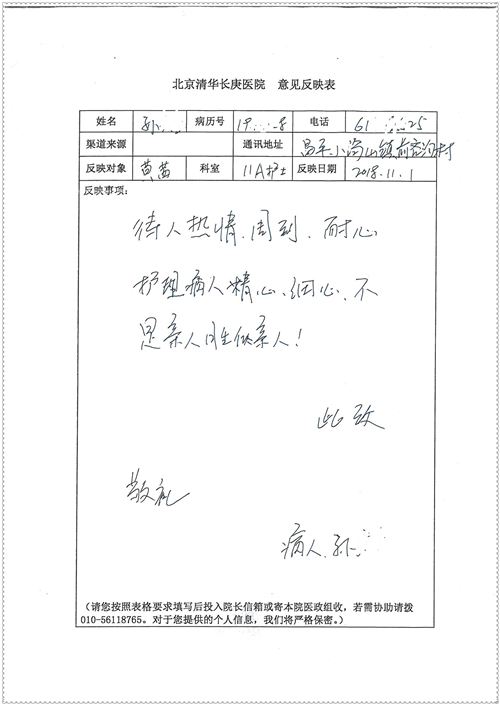 北京清华长庚医院 意见反映表
姓名 孙 病历号 19 8 电话 61 25
渠道来源 通讯地址 昌平小汤山镇前 村
反映对象 黄茜 科室 11A护士 反映日期 2018.11.1
反映事项:
待人热情、周到、耐心
护理病人精心、细心、不
是亲人胜似亲人!
此致
敬礼
病人、孙
(请您按照表格要求填写后投入院长信箱或寄本院医政组收,若需协助请拨
010-56118765。对于您提供的个人信息,我们将严格保密。)